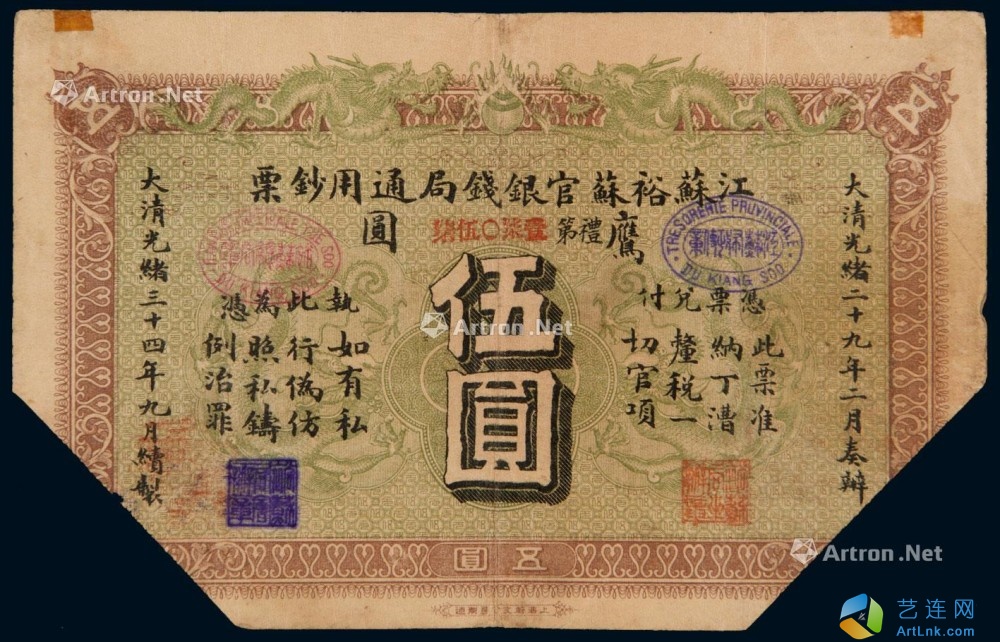 江蘇裕蘇官銀錢局通用鈔票
鷹
圓
禮第
壹柒〇伍玖
伍圓
大清光緒二十九年二月奏辦
憑
此票准
票納丁漕
兌釐稅一
付
切官項
執如有私
此行偽仿
為照私鑄
憑
例治罪
大清光緒三十四年九月續製
TRESORERIE PROVINCIALE
DU KIANG SOO
五圓
Artron.Net
Artron.Net
Artron.Net
Artron.Net
艺连网
ArtLnk.com